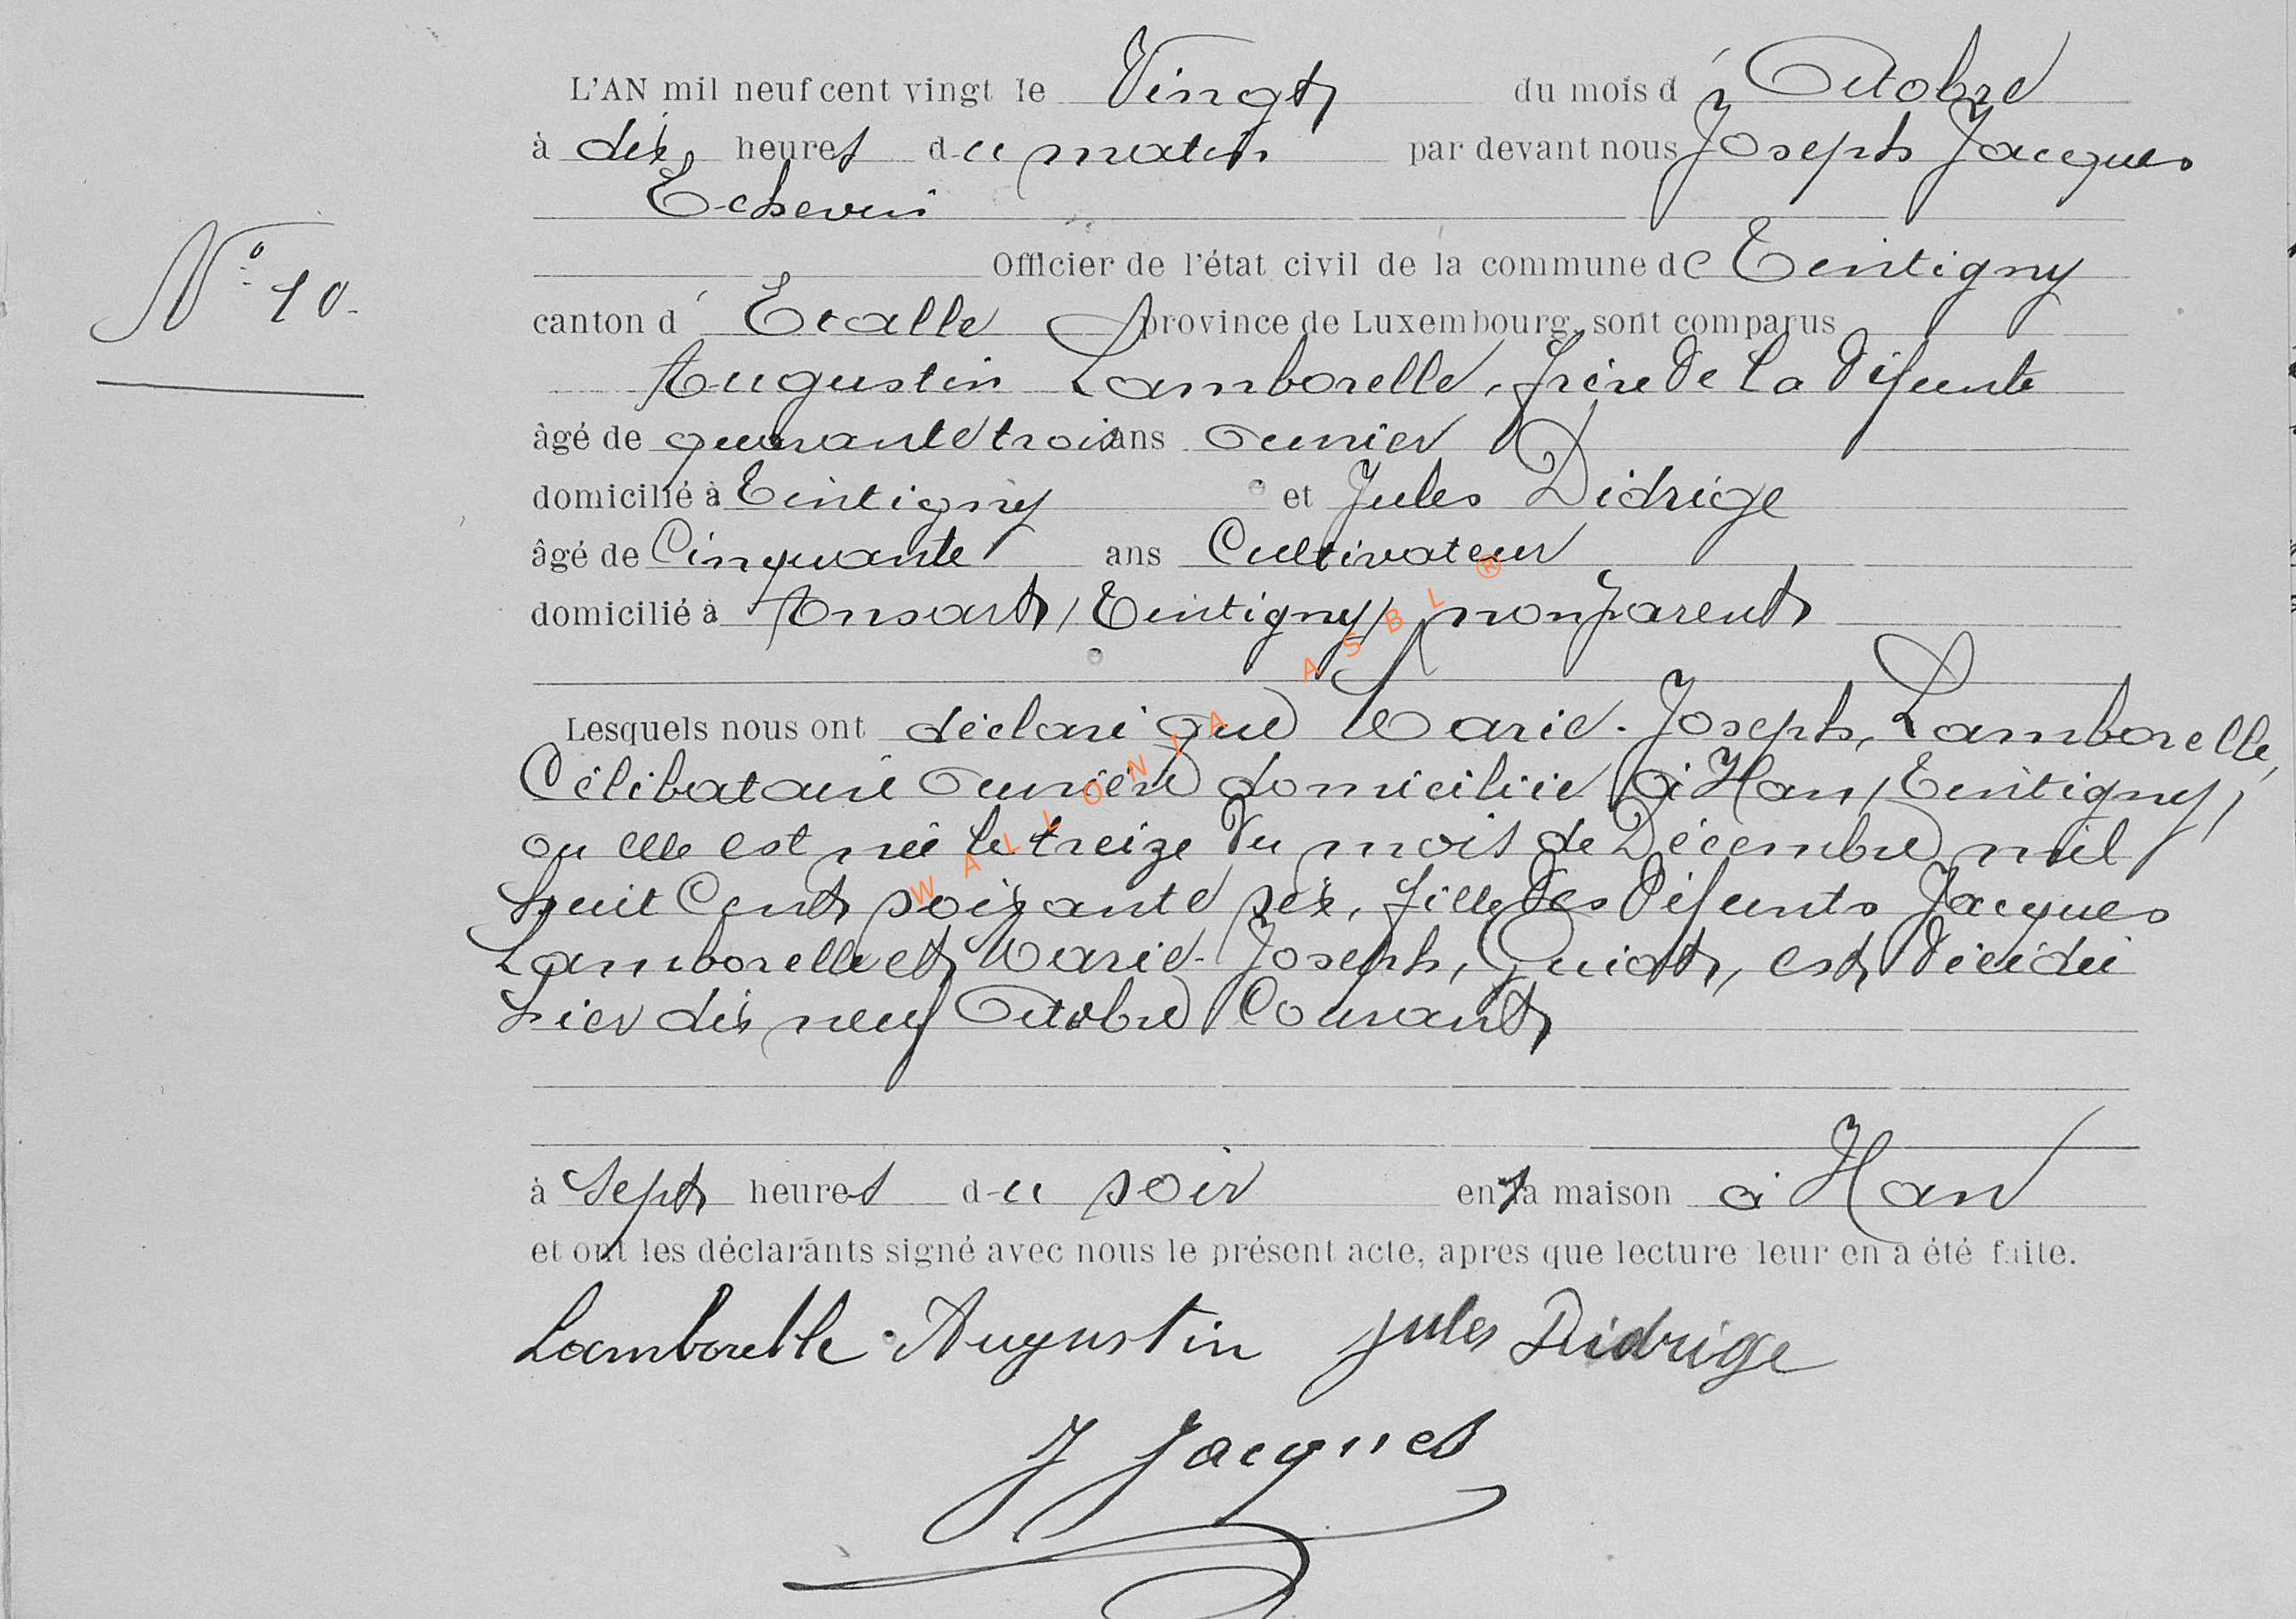 L'AN mil neuf cent vingt le Vingt du mois d'Octobre
à dix heures du matin par devant nous Joseph Jacques
Echevin
Officier de l'état civil de la commune de Tintigny
N° 10.
canton d'Etalle province de Luxembourg, sont comparus
Augustin Lamborelle, frère de la défunte
âgé de quarante trois ans ouvrier
domicilié à Tintigny et Jules Didrige
âgé de Cinquante ans Cultivateur
domicilié à Ansart, (Tintigny), non parent
Lesquels nous ont déclaré que Marie-Joseph, Lamborelle,
Célibataire ouvrière domiciliée à Han (Tintigny)
ou elle est née le treize du mois de Décembre mil
huit Cent soixante six, fille des défunts Jacques
Lamborelle et Marie-Joseph, Guiott, est décédée
hier dix neuf Octobre Courant
à sept heures du soir en sa maison à Han
et ont les déclarants signé avec nous le présent acte, apres que lecture leur en a été faite.
Lamborelle Augustin Jules Didrige
J Jacques
WALLONIA ASBL ®